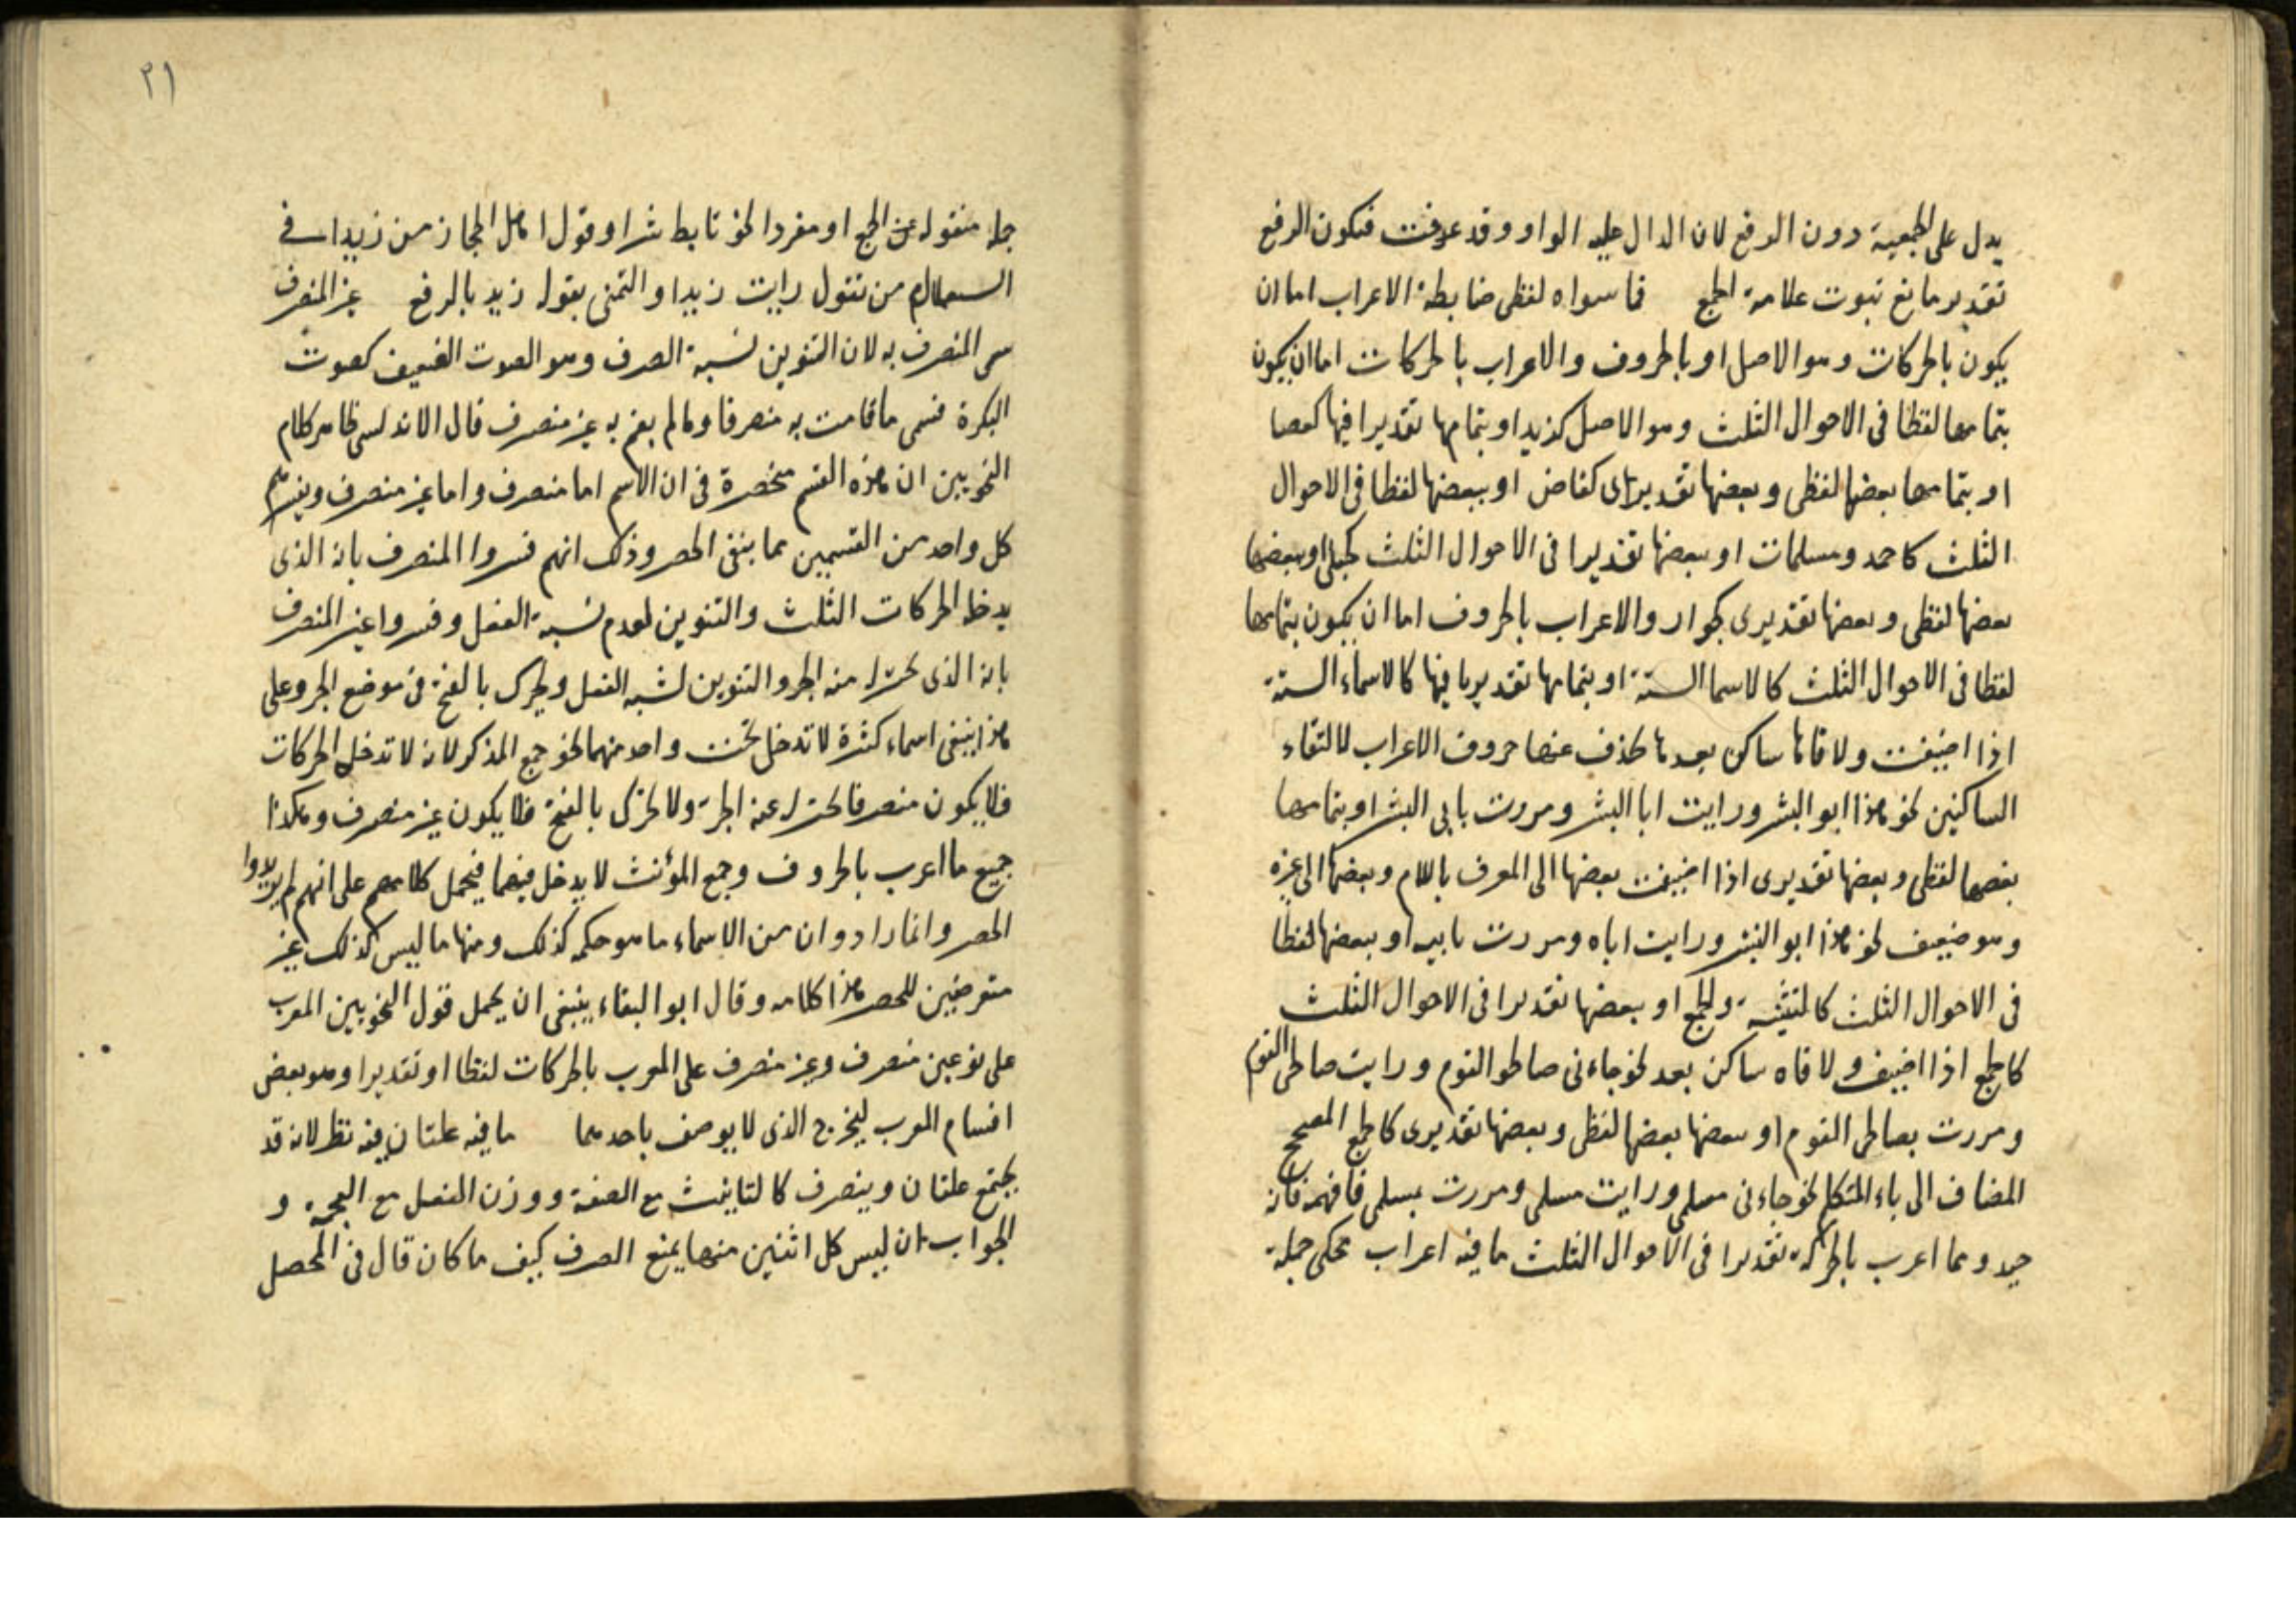 يدل على الجمعية دون الرفع لان الدال عليه الواو وقد عرفت فيكون الرفع
تقدير مانع ثبوت علامة الجمع فما سواه لفظى ضابطة الاعراب اما ان
يكون بالحركات وهو الاصل او بالحروف والاعراب بالحركات اما ان يكون
بتمامها لفظا فى الاحوال الثلث وهو الاصل كزيد او بتمامها تقديرا فيها كعصا
او بتمامها بعضها لفظى وبعضها تقديرى كقاض او ببعضها لفظا فى الاحوال
الثلث كاحمد ومسلمات او ببعضها تقديرا فى الاحوال الثلث كحبلى او ببعضها
بعضها لفظى وبعضها تقديرى كجوار والاعراب بالحروف اما ان يكون بتمامها
لفظا فى الاحوال الثلث كالاسما الستة او بتمامها تقديريا فيها كالاسماء الستة
اذا اضيفت ولاقاها ساكن بعدها يحذف عنها حروف الاعراب لالتقاء
الساكنين نحو هذا ابو البشر ورايت ابا البشر ومررت بابى البشر او بتمامها
بعضها لفظى وبعضها تقديرى اذا اضيفت بعضها الى المعرف باللام وبعضها الى غيره
وهو ضعيف نحو هذا ابو البشر ورايت اباه ومررت بابيه او ببعضها لفظا
فى الاحوال الثلث كالتثنية والجمع او ببعضها تقديرا فى الاحوال الثلث
كالجمع اذا اضيف ولاقاه ساكن بعد نحو جاءنى صالحو القوم ورايت صالحى القوم
ومررت بصالحى القوم او ببعضها بعضها لفظى وبعضها تقديرى كالجمع المصحح
المضاف الى ياء المتكلم نحو جاءنى مسلمى ورايت مسلمى ومررت بمسلمى فافهمه فانه
جيد ومما اعرب بالحركة تقديرا فى الاحوال الثلث ما فيه اعراب محكى جملة
٢١
جملة منقولة عن الجمع او مفردا نحو تابط شرا وقول اهل الحجاز من زيدا فى
من تقول رايت زيدا والتمنى بقوله زيد بالرفع غير المنصرف
سمى المنصرف به لان التنوين نسبة الصرف وهو الصوت الضعيف كصوت
البكرة فسمى ما قامت به منصرفا وما لم يقم به غير منصرف قال الاندلسى ظاهر كلام
النحويين ان هذه القسم منحصرة فى ان الاسم اما منصرف واما غير منصرف وتفسيرهم
كل واحد من القسمين مما ينفى الحصر وذلك انهم فسروا المنصرف بانه الذى
يدخله الحركات الثلث والتنوين لعدم نسبة الفعل وفسروا غير المنصرف
بانه الذى يختزل منه الجر والتنوين لشبه الفعل ويحرك بالفتح فى موضع الجر وعلى
هذا ينبغى اسماء كثيرة لا تدخل تحت واحد منهما نحو جمع المذكر لانه لا تدخله الحركات
فلا يكون منصرفا يختزل عنه الجر ولا تحرك بالفتح فلا يكون غير منصرف وهكذا
جميع ما اعرب بالحروف وجمع المؤنث لا يدخل فيهما فيحمل كلامهم على انهم لم يريدوا
الحصر وانما ارادوا ان من الاسماء ما هو حكمه كذلك ومنها ما ليس كذلك غير
متعرضين للحصر هذا كلامه وقال ابو البقاء ينبغى ان يحمل قول النحويين المعرب
على نوعين منصرف وغير منصرف على المعرب بالحركات لفظا او تقديرا وهو بعض
اقسام المعرب ليخرج الذى لا يوصف باحدهما ما فيه علتان فيه نظر لانه قد
يجتمع علتان وينصرف كالتانيث مع الصفة ووزن الفعل مع العجمة و
الجواب ان ليس كل اثنين منها يمنع الصرف كيف ما كان قال فى المحصل